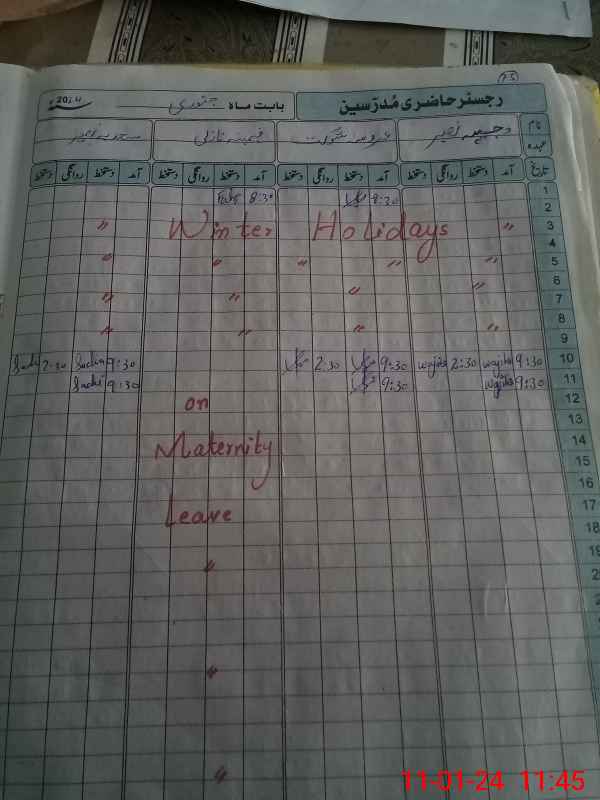 رجسٹر حاضری مدرّسین بابت ماہ جنوری
نام وجیہہ نصیر عروسہ شوکت سعدیہ نصیر
عہدہ
تاریخ آمد دستخط روانگی دستخط آمد دستخط روانگی دستخط آمد دستخط روانگی دستخط آمد دستخط روانگی دستخط
1 8:30 8:30
2
3 " Winter Holidays "
4
5 " " " " "
6 "
7 " " "
8
9 " " " "
10 9:30 wajiha 2:30 wajiha 9:30 2:30 9:30 Sadia 2:30 Sadi
11 9:30 wajiha 9:30 9:30 Sadi
12 on
13
14 Maternity
15
16
17 Leave
18
19 "
"
"
11-01-24 11:45